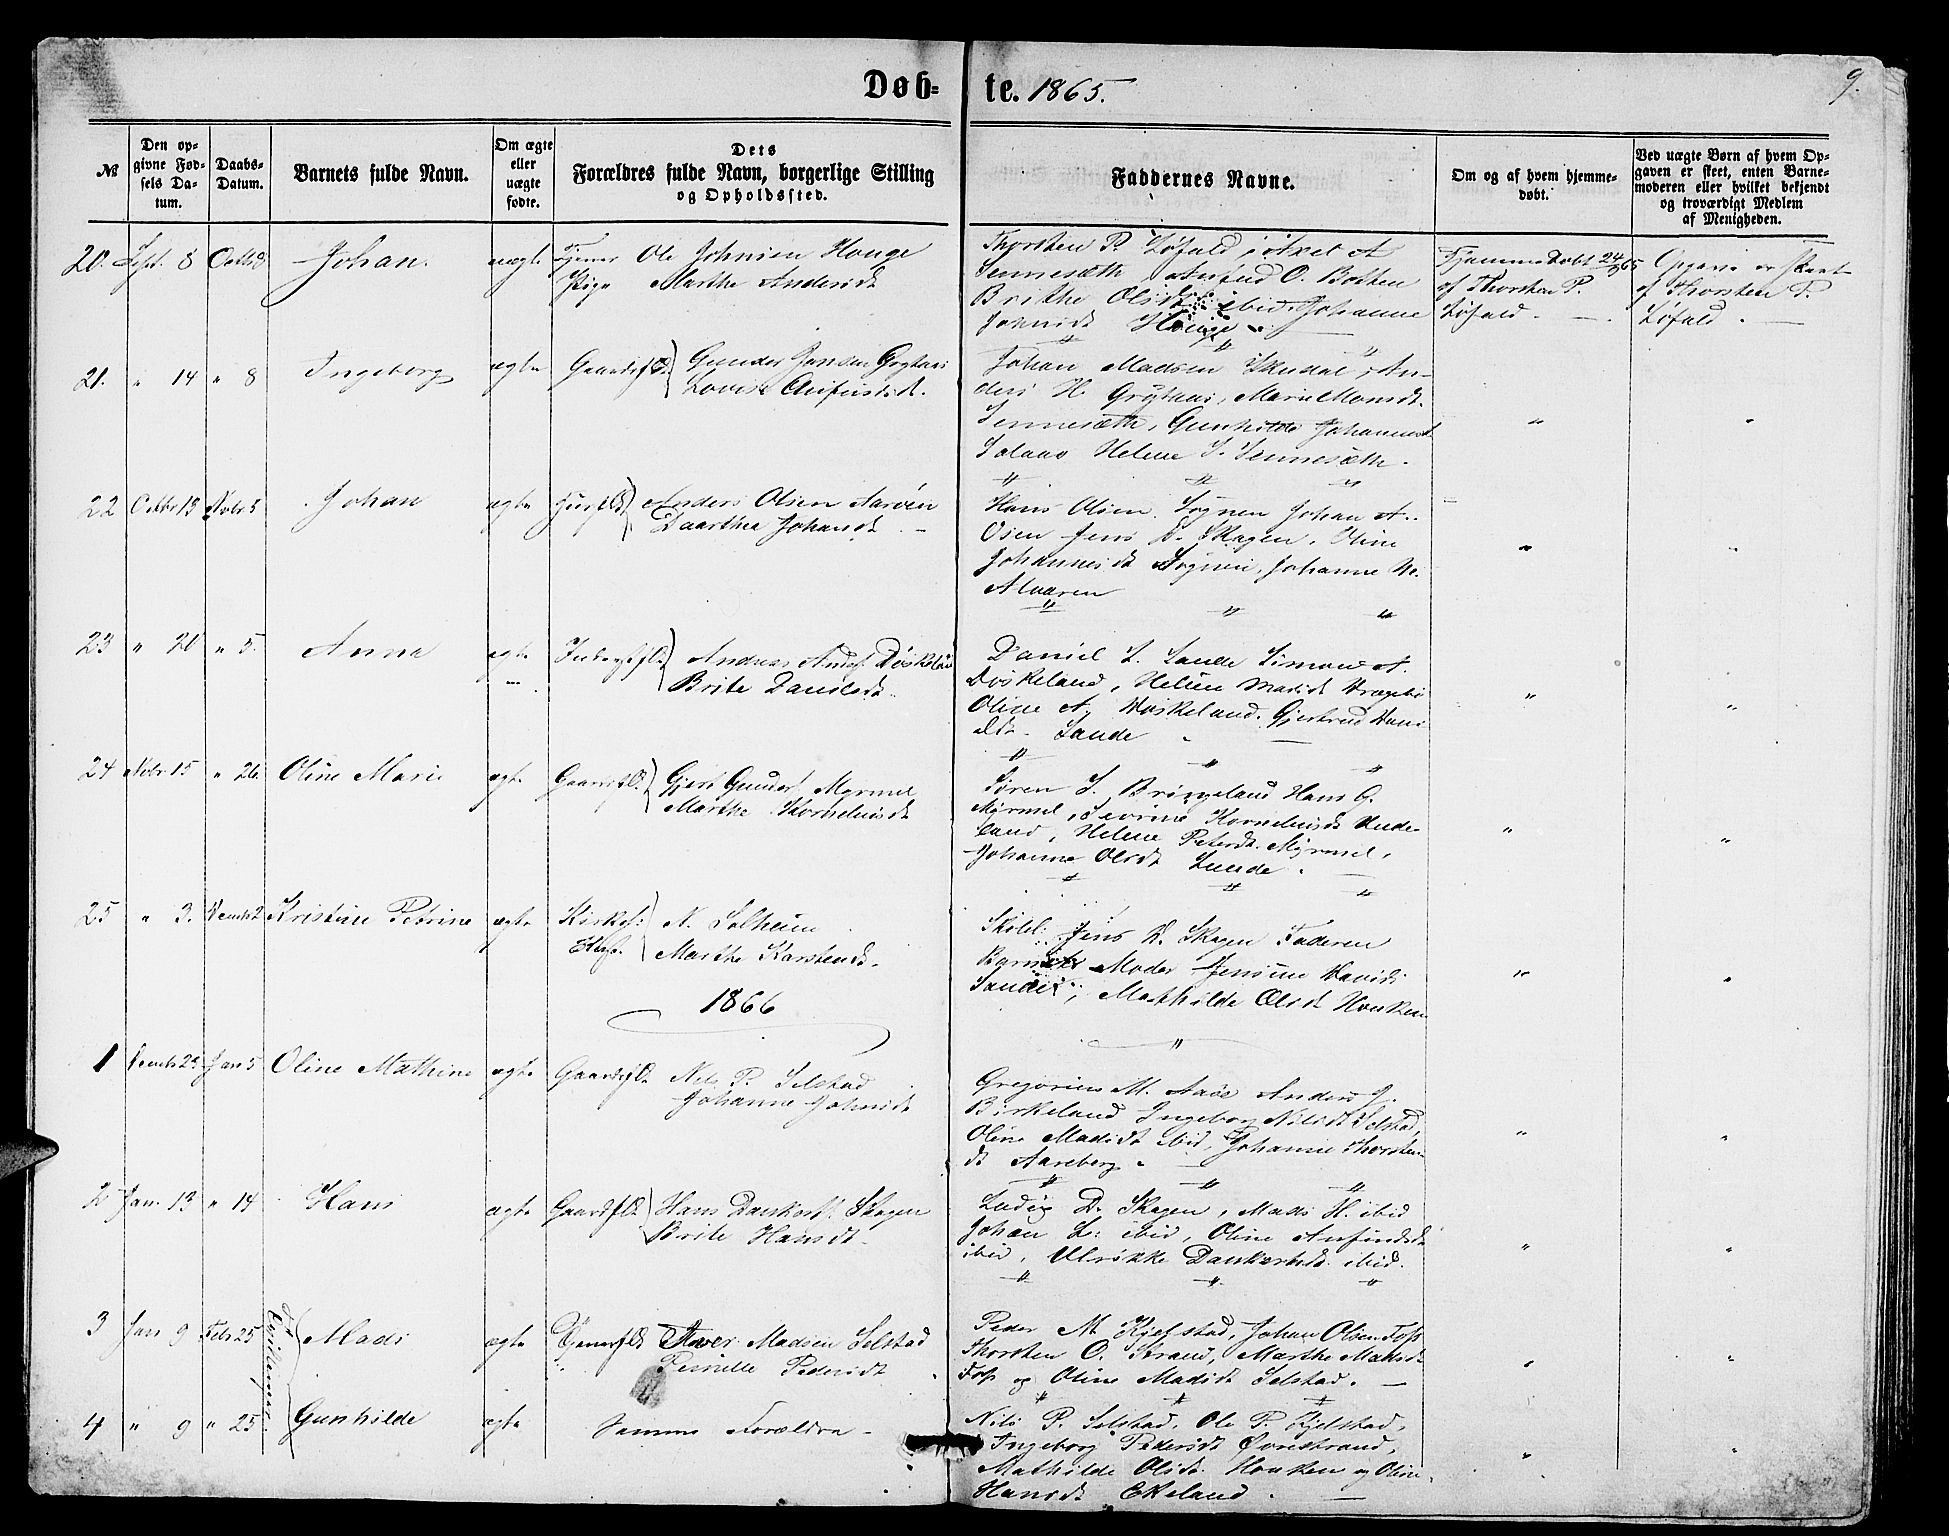 Døb=
te. 1865.
9.
№
Den op-
givne Fød-
sels Da-
tum.
Daabs-
Datum.
Barnets fulde Navn.
Om ægte
eller
uægte
fødte.
Dets
Forældres fulde Navn, borgerlige Stilling
og Opholdssted.
Faddernes Navne.
Om og af hvem hjemme-
døbt.
Ved uægte Børn af hvem Op-
gaven er skeet, enten Barne-
moderen eller hvilket bekjendt
og troværdigt Medlem
af Menigheden.
20. Sept. 8 Octb 8 Johan. uægte Tjener Ole Johnsen Houge
Pige Marthe Andersdt
Thorsten P. Løfald,
Sennesæth, O. Bothen
Brithe Olsdt ibid, Johanne
Johnsdt Houge
Hjemmedøbt 24/9 65
af Thorsten P.
Løfald. —
Opgaven er skeet
af Thorsten P.
Løfald. —
21. " 14 " 8 Ingeborg ægte Gaardsfld. Gunder Jensen
Lovise
Johan Madsen An-
ders H. Grytaas, Marie Monsdt.
Sennesæth, Gunhilde Johannesdt
Helene S. Sennesæth.
22 Octbr 13 Nvbr 5 Johan ægte Anders Olsen
Daarthea Johansdt. —
Hans Olsen. Sygnen Johan A.
Osen Jens D. Skagen, Oline
Johannesdt Sygnen, Johanne
Alvaren
23 " 20 " 5. Anna ægte Andreas
Brite Danielsdt.
Daniel L. Sande Simon A.
Døskeland, Helene Madsdt
Oline A. Døskeland. Gjertrud Dani-
elsdt. Sande
24 Nvbr 15 " 26. Oline Marie ægte Gaardsfld. Gjert Myrmel
Marthe Korneliusdt
Søren S. Bringeland Hans G.
Myrmel, Severine Korneliusdt Unde-
land, Helene Petersdt. Myrmel,
Johanne Olsdt Lunde.
25 " 3. Decmb 2 Kristine Petrine ægte Kirkes: N. Solheim
Marthe Karstensdt.
Skolel: Jens D. Skagen Faderen
Barnets Moder Jensine Davids
Sande, Mathilde Olsdt Houken
1866
1 Decmb 23 Jan 5 Oline Mathine ægte Gaardsfld. Nils P. Selstad
Johanne Johnsdt
Gregorius M. Anders J.
Birkeland Ingeborg Nilsdt Selstad,
Oline Madsdt ibid, Johanne Thorsten-
dt Aareberg.
2 Jan. 13 " 14 Hans ægte Gaardsfld. Hans Dankerts. Skagen
Brite Hansdt.
Ludvig D. Skagen, Mads H. ibid
Johan L: ibid, Oline Anfindsdt
ibid, Ulrikke Dankertsdt. ibid.
3 Jan 9 Feb 25 Tvillinger Mads ægte Iver Madsen Selstad
Pernille Pedersdt
Peder M Kjelstad, Johan Olsen Foss
Thorsten O. Strand, Marthe Madsdt
Foss og Oline Madsdt Selstad. —
4 " 9 " 25 Gunhilde ægte Samme Forældre —
Nils P. Selstad, Ole P. Kjelstad,
Ingeborg Pedersdt Øvrestrand,
Mathilde Olsdt. Houken og Oline
Hansdt Ekeland. —